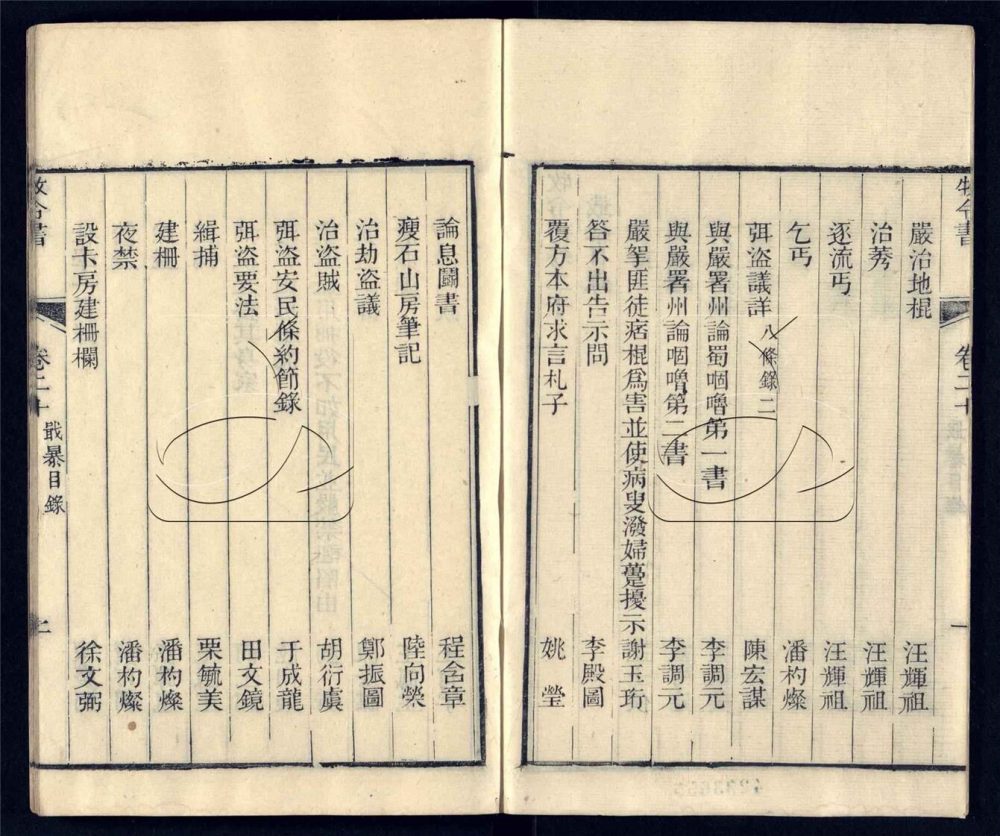 牧令書
卷二十
嚴治地棍　汪輝祖
治莠　汪輝祖
逐流丐　汪輝祖
乞丐　潘杓燦
弭盜議詳 八條錄二　陳宏謀
與嚴署州論蜀啯嚕第一書　李調元
與嚴署州論啯嚕第二書　李調元
嚴拏匪徒痞棍爲害並使病叟潑婦躉擾示　謝玉珩
答不出告示問　李殿圖
覆方本府求言札子　姚瑩
論息鬭書　程含章
瘦石山房筆記　陸向榮
治劫盜議　鄭振圖
治盜賊　胡衍虞
弭盜安民條約節錄　于成龍
弭盜要法　田文鏡
緝捕　栗毓美
建栅　潘杓燦
夜禁　潘杓燦
設卡房建栅欄　徐文弼
牧令書
卷二十
戢暴目錄